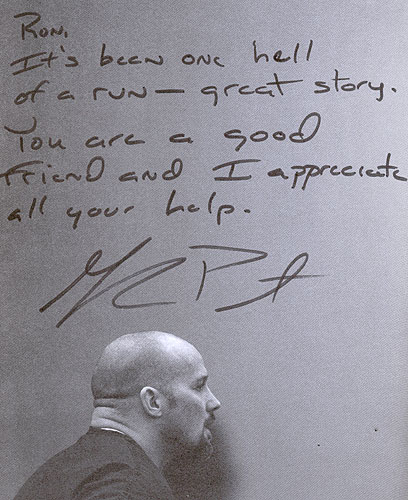 Ron,
It's been one hell
of a run — great story.
You are a good
friend and I appreciate
all your help.